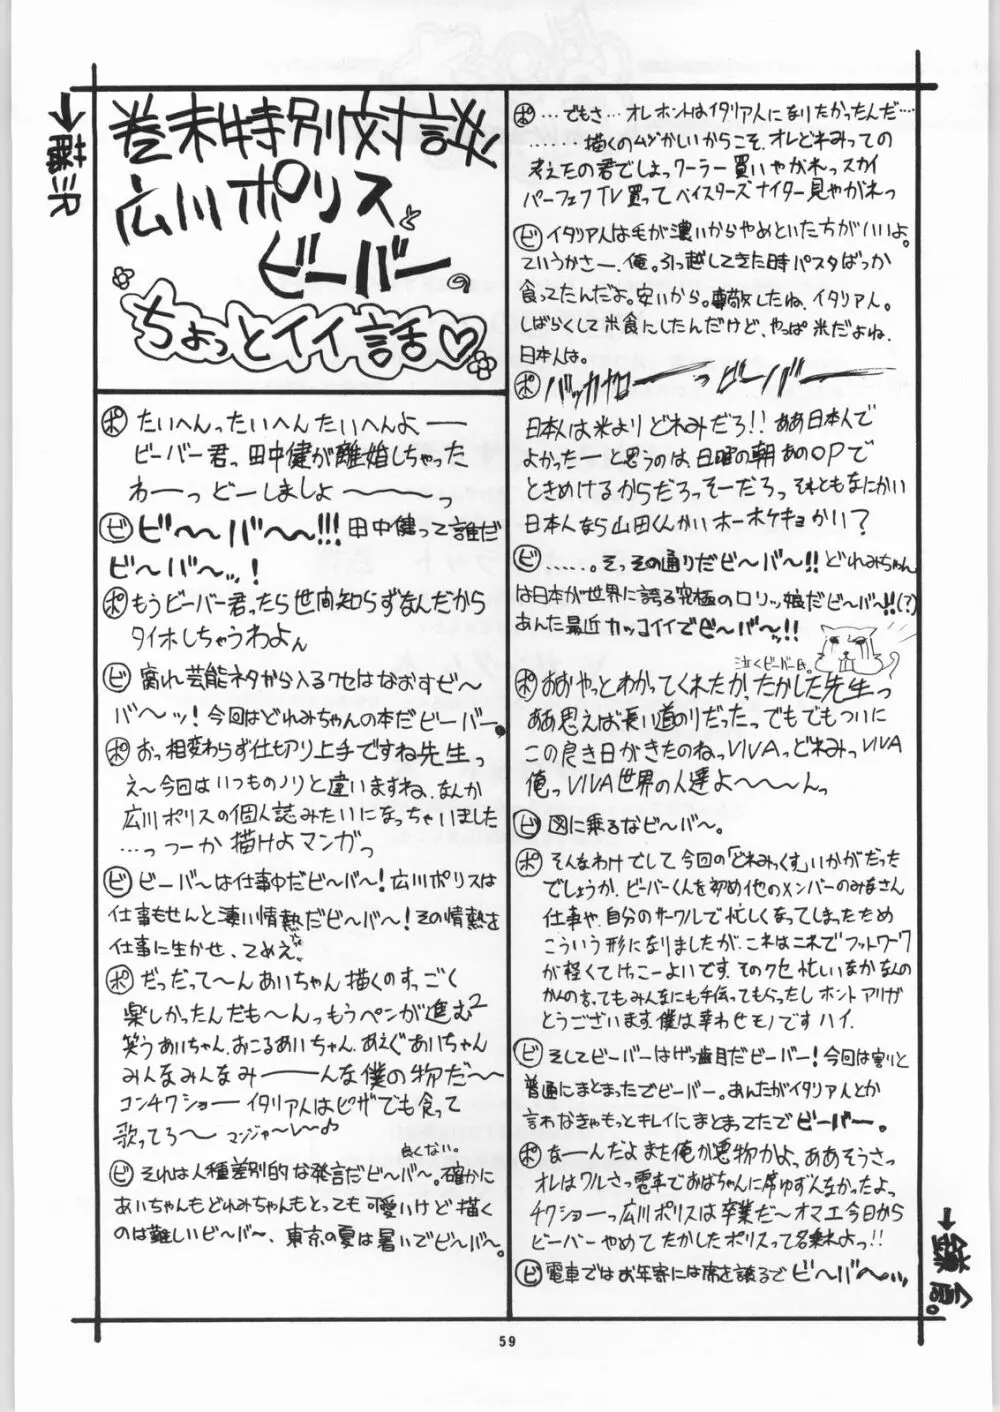 巻末特別対談!
広川ポリスと
ビーバーの
ちょっとイイ話♡
→藤沢
ポ たいへんったいへんたいへんよー
ビーバー君っ田中健が離婚しちゃった
わーっどーしましょ〜〜〜っ
ビ ビ〜〜バ〜〜!!!田中健って誰だ
ビ〜バ〜ッ!
ポ もうビーバー君ったら世間知らずなんだから
タイホしちゃうわよん
ビ 腐れ芸能ネタから入るクセはなおすビ〜
バ〜ッ!今回はどれみちゃんの本だビーバー。
ポ おっ相変わらず仕切り上手ですね先生っ
え〜今回はいつものノリと違いますね、なんか
広川ポリスの個人誌みたいになっちゃいました
…っつーか描けよマンガっ
ビ ビーバ〜は仕事中だビ〜バ〜!広川ポリスは
仕事もせんと凄い情熱だビ〜バ〜!その情熱を
仕事に生かせ、てめえ
ポ だっだって〜んあいちゃん描くのすっごく
楽しかったんだも〜んっもうペンが進む2
笑うあいちゃん、おこるあいちゃん、あえぐあいちゃん
みんなみんなみーーーんな僕の物だ〜〜
コンチクショーイタリア人はピザでも食って
歌ってろ〜マンジャ〜レ〜♪
良くない。
ビ それは人種差別的な発言だビ〜バ〜。確かに
あいちゃんもどれみちゃんもとっても可愛いけど描く
のは難しいビ〜バ〜、東京の夏は暑いでビ〜バ〜。
ポ …でもさ…オレホントはイタリア人になりたかったんだ…
……描くのムヅかしいからこそ、オレどれみっての
考えたの君でしょっクーラー買いやがれっスカイ
パーフェクTV買ってベイスターズナイター見やがれっ
ビ イタリア人は毛が濃いからやめといた方がいいよ。
ていうかさー、俺。引っ越してきた時パスタばっか
食ってたんだよ。安いから。尊敬したね、イタリア人。
しばらくして米食にしたんだけど、やっぱ米だよね、
日本人は。
ポ バッカヤローーっビーバーーー
日本人は米よりどれみだろ!!ああ日本人で
よかったーと思うのは、日曜の朝あのOPで
ときめけるからだろっそーだろっそれともなにかい
日本人なら山田くんかいホーホケキョかい?
ビ ……。そっその通りだビ〜バ〜!!どれみちゃん
は日本が世界に誇る究極のロリッ娘だビ〜バ〜!!(?)
あんた最近カッコイイでビ〜バ〜ッ!!
泣くビーバー氏。
ポ おおやっとわかってくれたかったかした先生っ
ああ思えば長い道のりだったっでもでもついに
この良き日がきたのねっVIVAっどれみっVIVA
俺っVIVA世界の人達よ〜〜〜んっ
ビ 図に乗るなビ〜バ〜。
ポ そんなわけでして今回の「どれみっくす」いかがだった
でしょうか、ビーバーくんを初め他のメンバーのみなさん
仕事や、自分のサークルで忙しくなってしまったため
こういう形になりましたが、これはこれでフットワーク
が軽くてけっこーよいです、そのクセ忙しいなかなんの
かんの言ってもみんなにも手伝ってもらったしホントアリガ
とうございます、僕は幸わせモノですハイ、
ビ そしてビーバーはげっ歯目だビーバー!今回は割りと
普通にまとまったでビーバー。あんたがイタリア人とか
言わなきゃもっとキレイにまとまってたでビーバー。
ポ なーんだよまた俺が悪物かよっああそうさっ
オレはワルさっ電車でおばちゃんに席ゆずんなかったよっ
チクショーっ広川ポリスは卒業だ〜オマエ今日から
ビーバーやめてたかしたポリスって名乗れよっ!!
ビ 電車ではお年寄には席を譲るでビ〜バ〜ッ
→鎌倉。
59